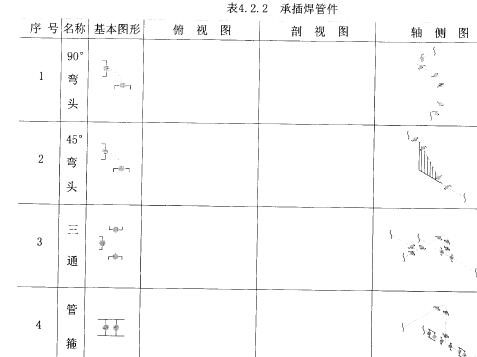 表4.2.2 承插焊管件
序号 名称 基本图形 俯视图 剖视图 轴侧图
1 90°弯头
2 45°弯头
3 三通
4 管箍